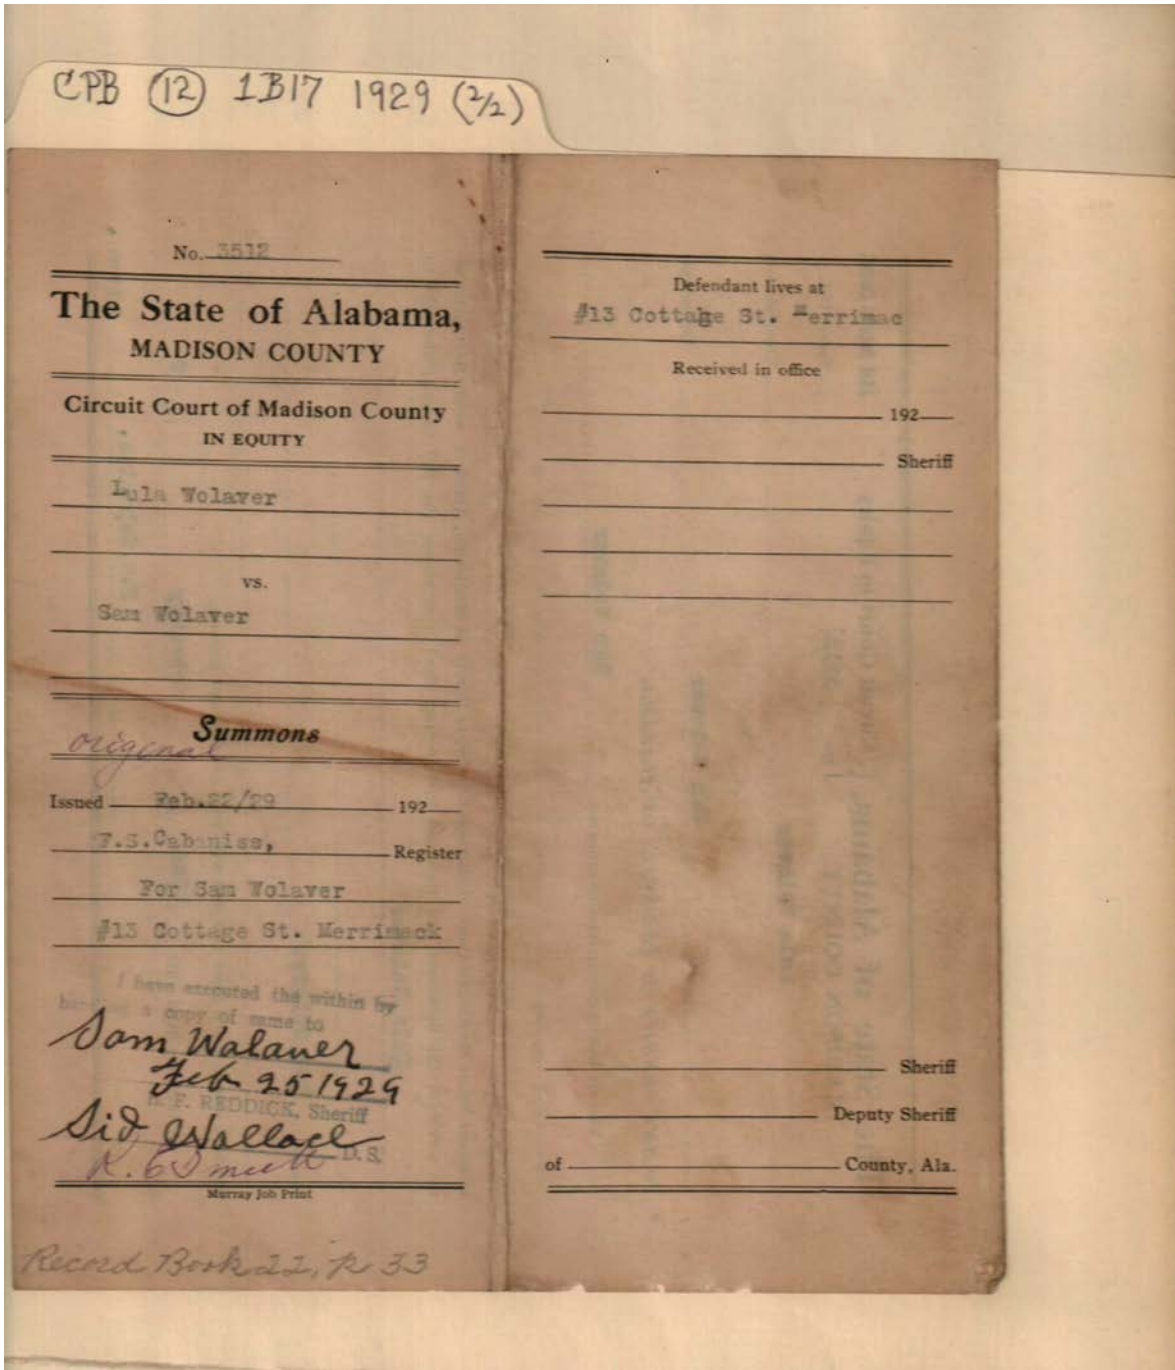 CPB (12) 1B17 1929 (2/2)
No. 3512
The State of Alabama,
MADISON COUNTY
Circuit Court of Madison County
IN EQUITY
Lula Wolaver
vs.
Sam Wolaver
Summons
original
Issued Feb.22/29 192
F.S.Cabaniss, Register
For Sam Wolaver
#13 Cottage St. Merrimack
I have executed the within by
a copy of same to
Sam Walaver
Feb 25 1929
F. REDDICK, Sheriff
Sid Wallace
D.S.
Murray Job Print
Record Book 22, P. 33
Defendant lives at
#13 Cottage St. Merrimac
Received in office
192
Sheriff
Sheriff
Deputy Sheriff
of County, Ala.